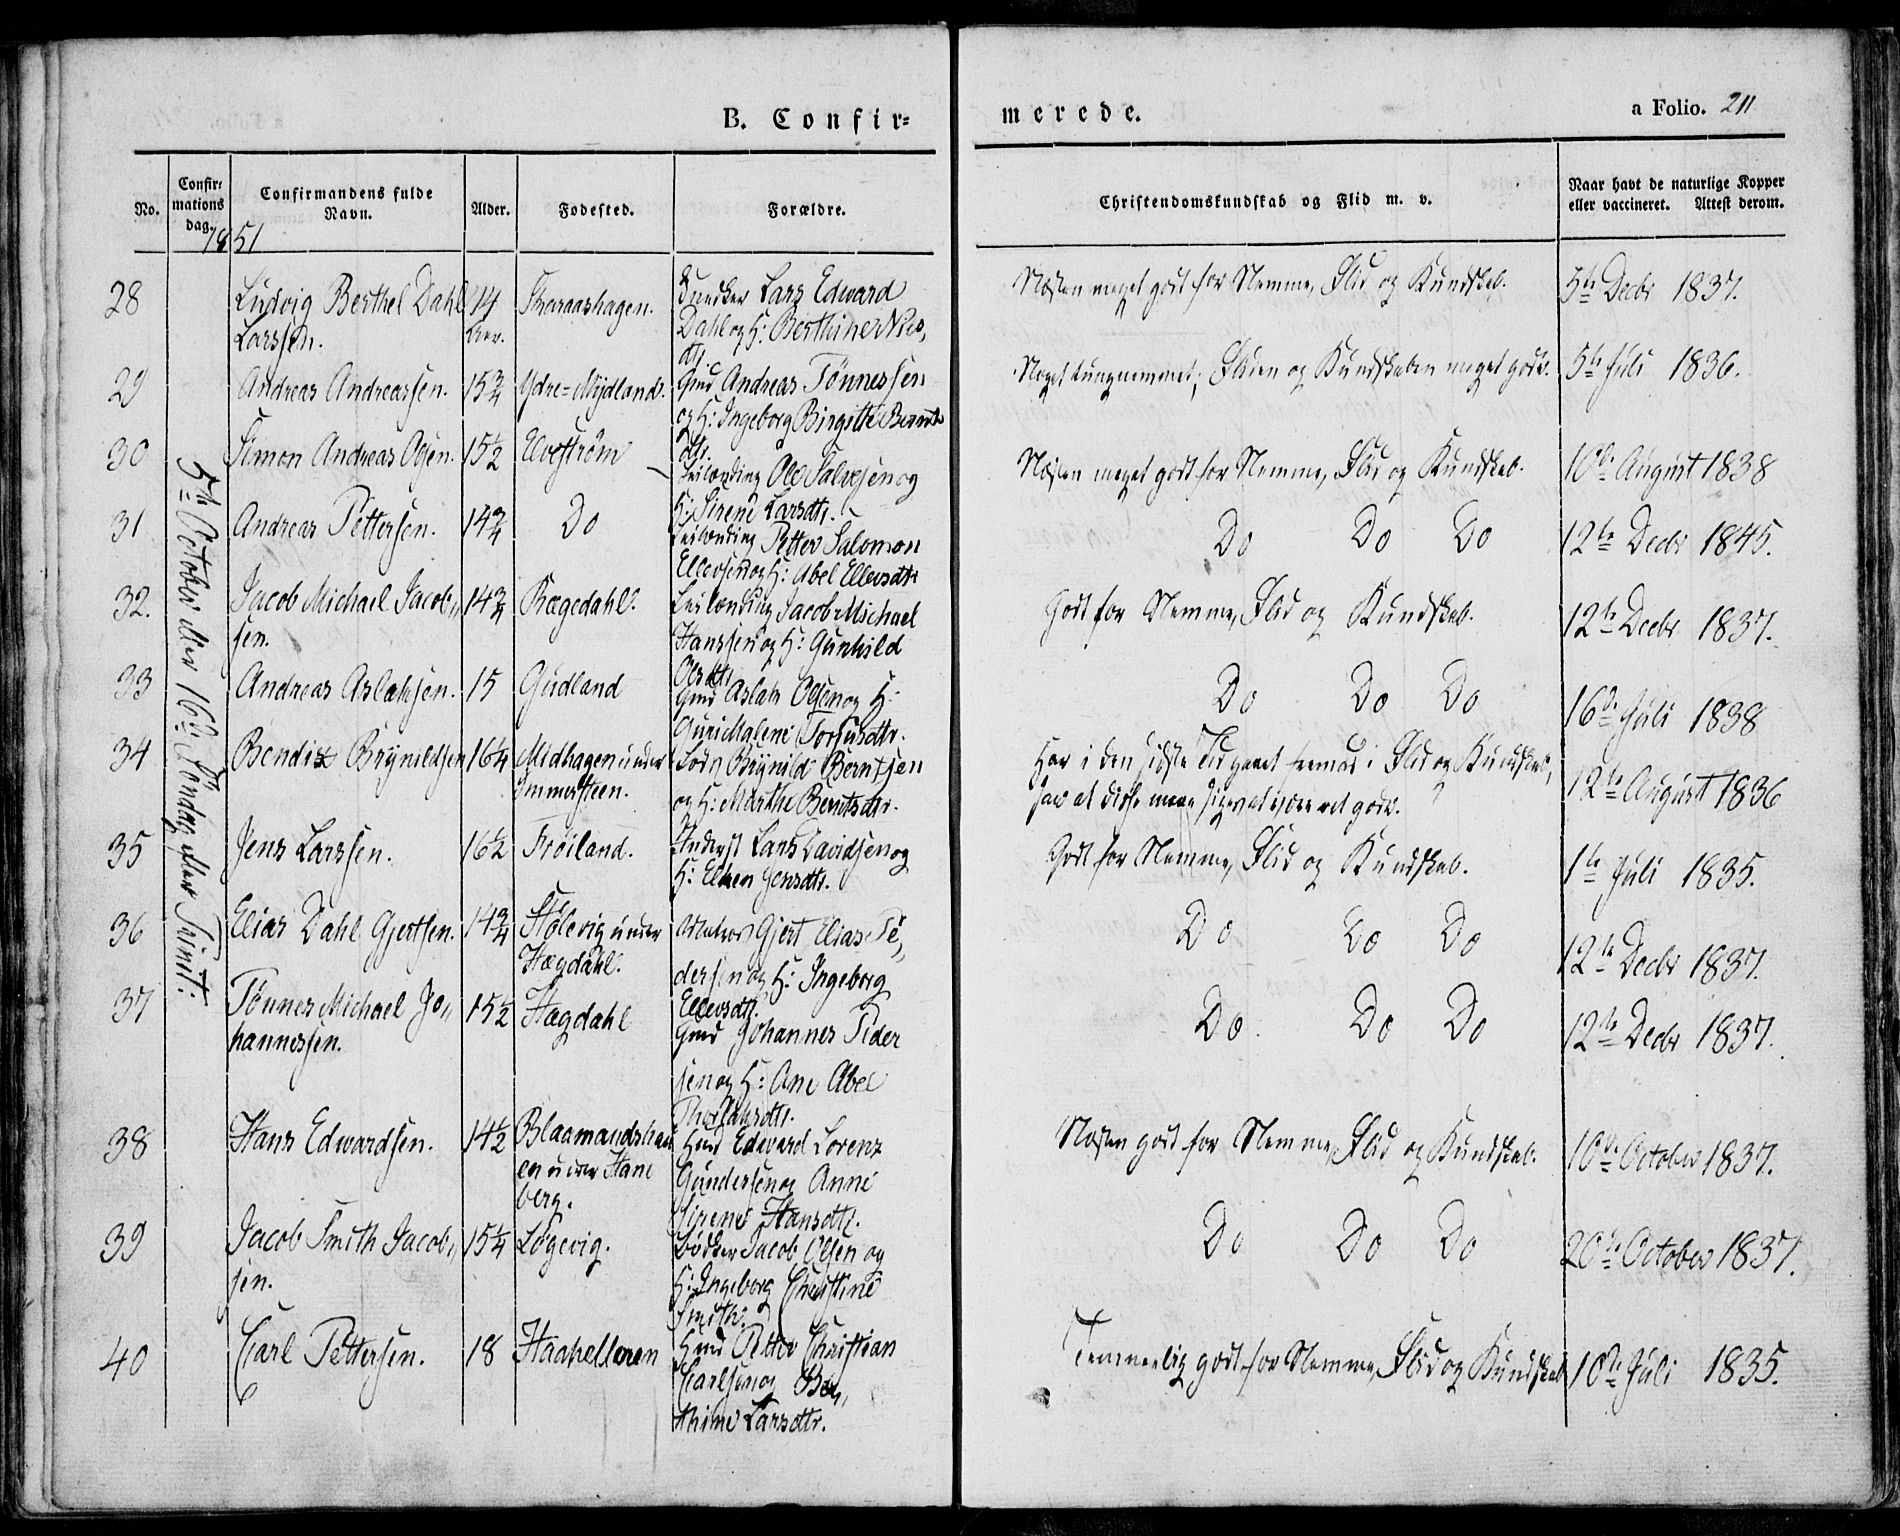 B. Confir=
merede.
a Folio. 211
No.
Confir=
mations
dag.
Confirmandens fulde
Navn.
Alder.
Fodested.
Forældre.
Christendomskundskab og Flid m. v.
Naar havt de naturlige Kopper
eller vaccineret. Attest derom.
1851
5te October eller 16de Søndag efter Trinit:
28
Ludvig Berthel Dahl
Larssen.
14
Aar.
Skaraashagen.
Lars Edward
Dahl og H: Berthine Nils,
dtr.
Næsten meget godt for Nemme, Flid og Kundskab.
5te Decbr 1837.
29
Andreas Andreassen.
15 3/4
Ydre=Mydland.
Gmd Andreas Tønnessen
og H: Ingeborg Birgitte Bernt
dtr.
Noget tungnemmet; Fliden og Kundskaben meget godt.
5te Juli 1836.
30
Simon Andreas Olsen.
15 1/2
Elvestrøm
Inslænding Ole Salvesen og
H: Sirene Larsdtr.
Næsten meget godt for Nemme, Flid og Kundskab.
10de August 1838
31
Andreas Pettersen.
14 3/4
Do
Inslænding Petter Salomon
Ellevsen og H: Abel Ellevsdtr
Do Do Do
12te Decbr 1845.
32.
Jacob Michael Jacob,,
sen.
14 3/4
Rægedahl.
Inslænding Jacob Michael
Hanssen og H: Gunhild
Olsdtr.
Godt for Nemme, Flid og Kundskab.
12te Decbr 1837.
33
Andreas Aslaksen.
15
Gudland
Gmd Aslak Olsen og H:
Guri Malene Torjusdtr.
Do Do Do
16de Juli 1838
34
Bendix Brynildsen
16 1/4
Midhagen under
Immersteen.
Brynild Berntsen
og H: Marthe Berntsdtr.
Har i den sidste Tid gaaet fremad i Flid og Kundskab,
saa at disse maae siges at være ret godt.
12te August 1836
35
Jens Larssen.
16 1/2
Frøiland.
Inderst Lars Davidsen og
H: Elken Jensdtr.
Godt for Nemme, Flid og Kundskab.
1te Juli 1835.
36
Elias Dahl Gjertsen.
14 3/4
Stølevig under
Hægdahl.
Matros Gjert Elias Pe,,
dersen og H: Ingeborg
Ellevsdtr.
Do Do Do
12te Decbr 1837.
37
Tønnes Michael Jo,,
hannessen.
15 1/2
Hægdahl
Gmd Johannes Peder
sen og H: Ane Abel
Do Do Do
12te Decbr 1837.
38
Hans Edwardsen.
14 1/2
Blaamandshau
en under Stane
berg.
Hmd Edvard Lorenz
Gundersen og Anne
Sirene Hansdtr.
Næsten godt for Nemme, Flid og Kundskab.
10de October 1837.
39
Jacob Smith Jacob,,
sen.
15 1/4
Løgevig.
Bødker Jacob Olsen og
H: Ingeborg Christine
Smith.
Do Do Do
20de October 1837.
40
Carl Pettersen.
18
Haahelleren
Hmd Petter Christian
Carlsen og Ber,,
thine Larsdtr.
Temmelig godt for Nemme, Flid og Kundskab
10de Juli 1835.